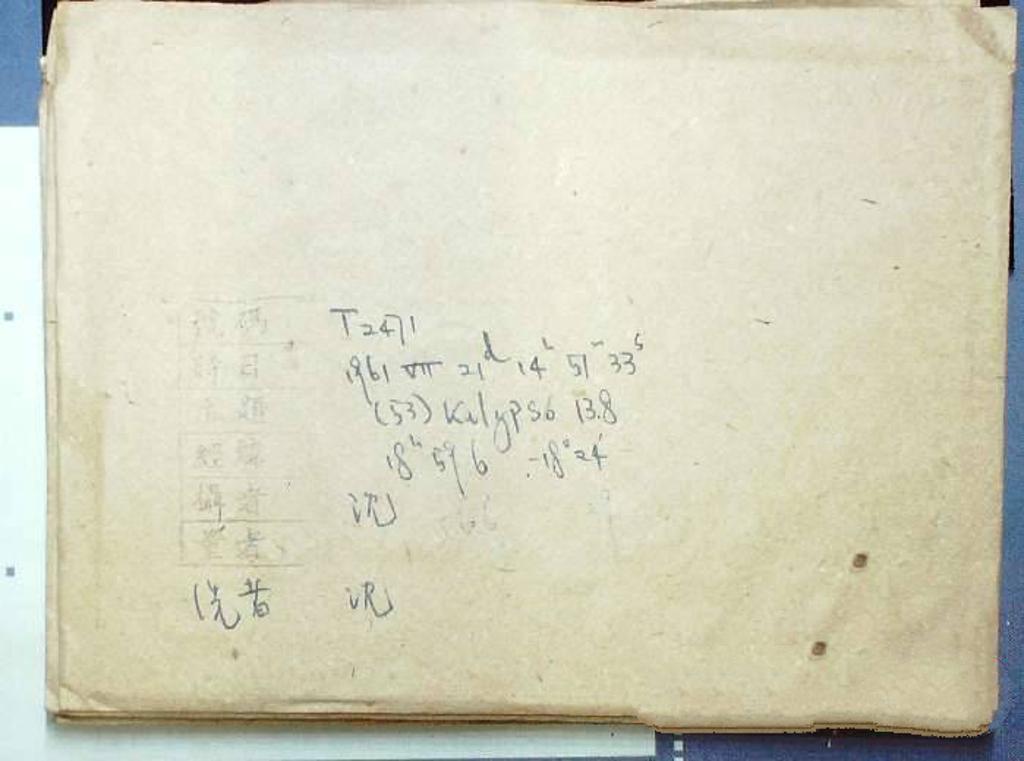 號碼 T2471
時日 1961 VII 21d 14h 51m 33s
主題 (53) Kalypso 13.8
經緯 18h 59.6 -18°24'
攝者 沈
量者
洗者 沈